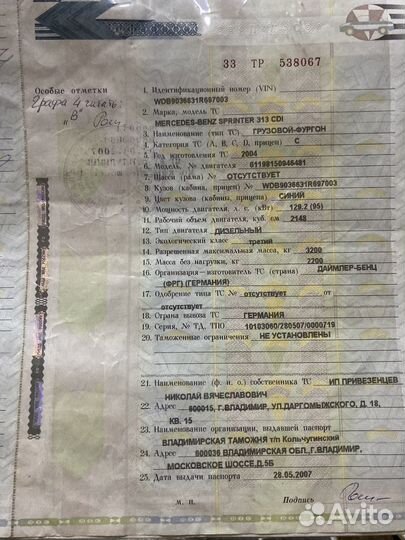 33 ТР 538067
Особые отметки
Графа 4 читать:
"В"
1. Идентификационный номер (VIN)
WDB9036631R697003
2. Марка, модель ТС
MERCEDES-BENZ SPRINTER 313 CDI
3. Наименование (тип ТС) ГРУЗОВОЙ-ФУРГОН
4. Категория ТС (A, B, C, D, прицеп) C
5. Год изготовления ТС 2004
6. Модель, № двигателя 61198150946481
7. Шасси (рама) № ОТСУТСТВУЕТ
8. Кузов (кабина, прицеп) № WDB9036631R697003
9. Цвет кузова (кабины, прицепа) СИНИЙ
10. Мощность двигателя, л. с. (кВт) 129.2 (95)
11. Рабочий объем двигателя, куб. см 2148
12. Тип двигателя ДИЗЕЛЬНЫЙ
13. Экологический класс третий
14. Разрешенная максимальная масса, кг 3200
15. Масса без нагрузки, кг 2200
16. Организация-изготовитель ТС (страна) ДАЙМЛЕР-БЕНЦ
(ФРГ) (ГЕРМАНИЯ)
17. Одобрение типа ТС № отсутствует от
отсутствует
18. Страна вывоза ТС ГЕРМАНИЯ
19. Серия, № ТД, ТПО 10103060/280507/0000719
20. Таможенные ограничения НЕ УСТАНОВЛЕНЫ
21. Наименование (ф. и. о.) собственника ТС ИП ПРИВЕЗЕНЦЕВ
НИКОЛАЙ ВЯЧЕСЛАВОВИЧ
22. Адрес 600015, Г.ВЛАДИМИР, УЛ.ДАРГОМЫЖСКОГО, Д.18,
КВ. 15
23. Наименование организации, выдавшей паспорт
ВЛАДИМИРСКАЯ ТАМОЖНЯ т/п Кольчугинский
24. Адрес 600036 ВЛАДИМИРСКАЯ ОБЛ.,Г.ВЛАДИМИР,
МОСКОВСКОЕ ШОССЕ,Д.5Б
25. Дата выдачи паспорта 28.05.2007
М. П. Подпись
Avito